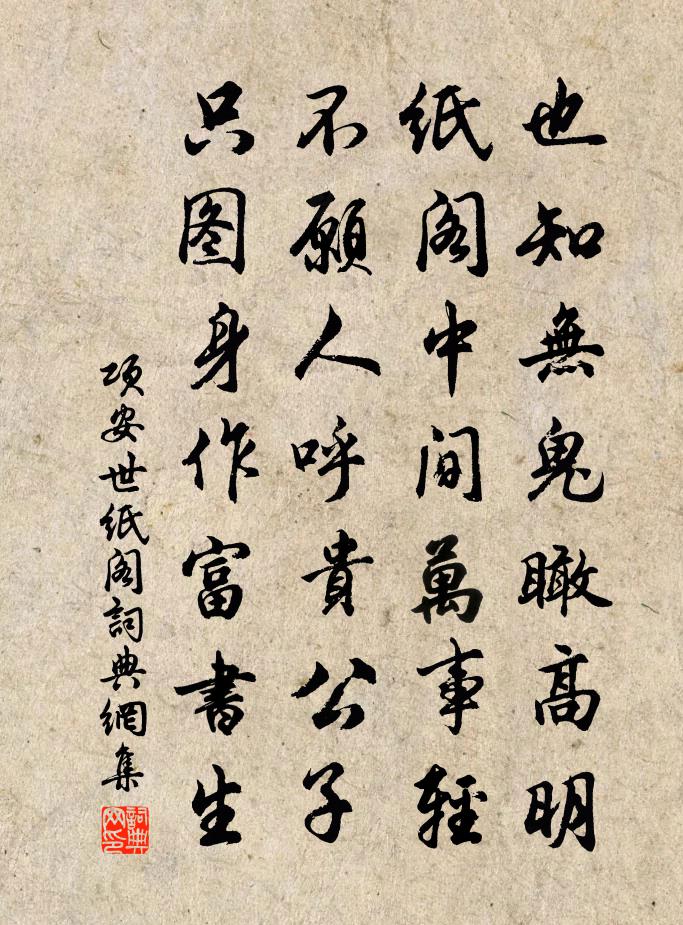 也知無鬼瞰高明
紙閣中間萬事輕
不願人呼貴公子
只图身作富書生
项安世纸阁詞典網集
詞典
网印